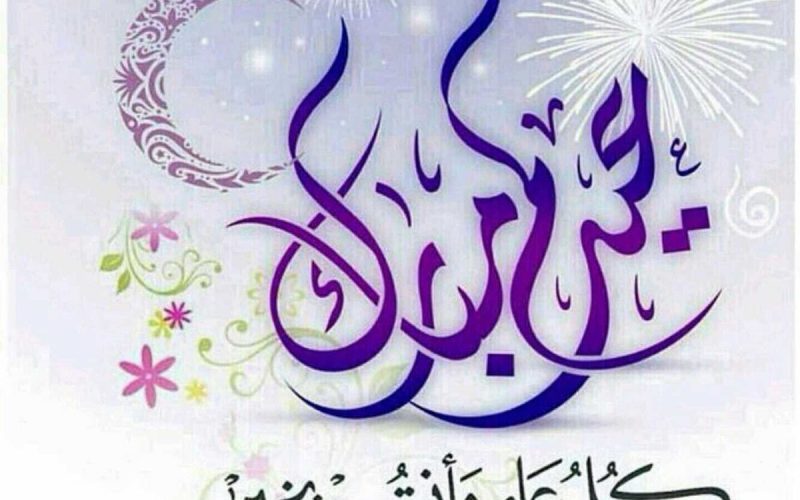 عيد مبارك
كُلُ عَام وَأنتُم بخير